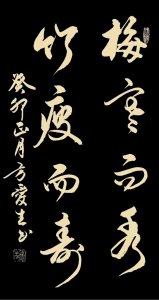 梅寒而秀
竹瘦而寿
癸卯正月方爱生书